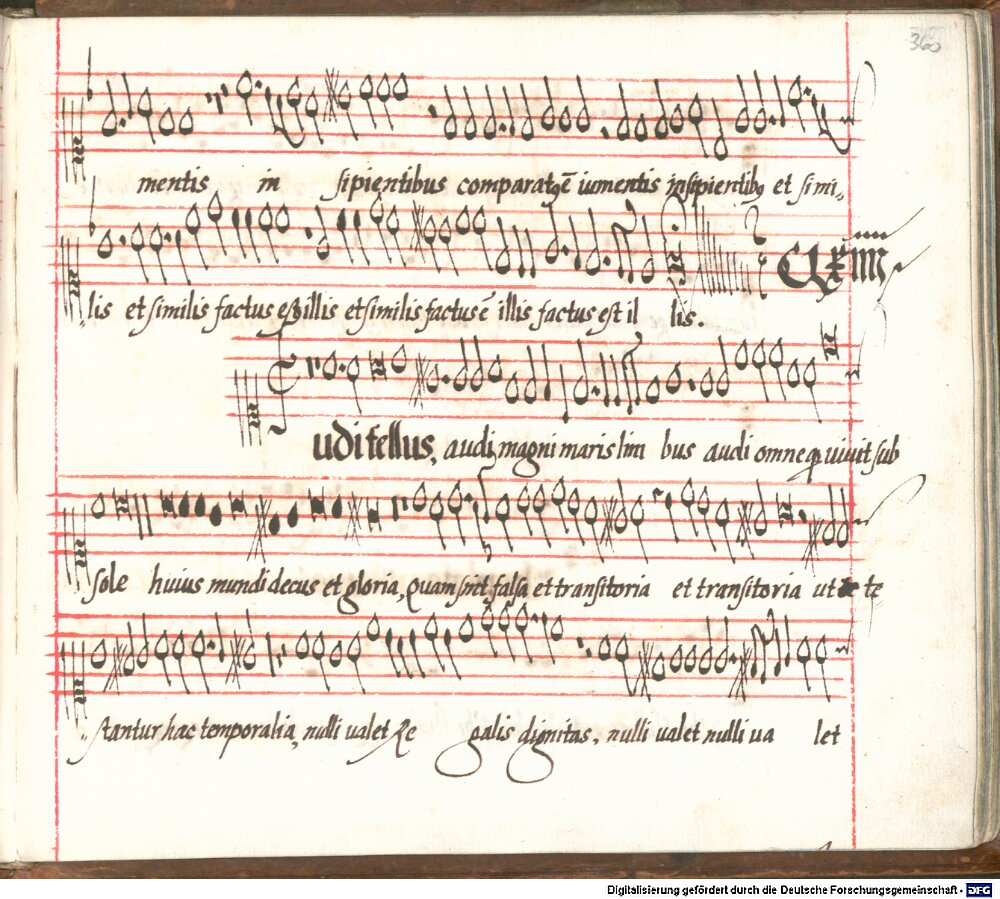 360
mentis in sipientibus comparatꝰ ē iumentis insipientibꝰ et simi„
CLXIIII
„lis et similis factus est illis et similis factus ē illis factus est il lis.
udi tellus, audi magni maris lim bus audi omne qͥ uiuit sub
sole huius mundi decus et gloria, Quam sint falsa et transitoria et transitoria ut te
„stantur hac temporalia, nulli ualet Re galis dignitas, nulli ualet nulli ua let
Digitalisierung gefördert durch die Deutsche Forschungsgemeinschaft - DFG